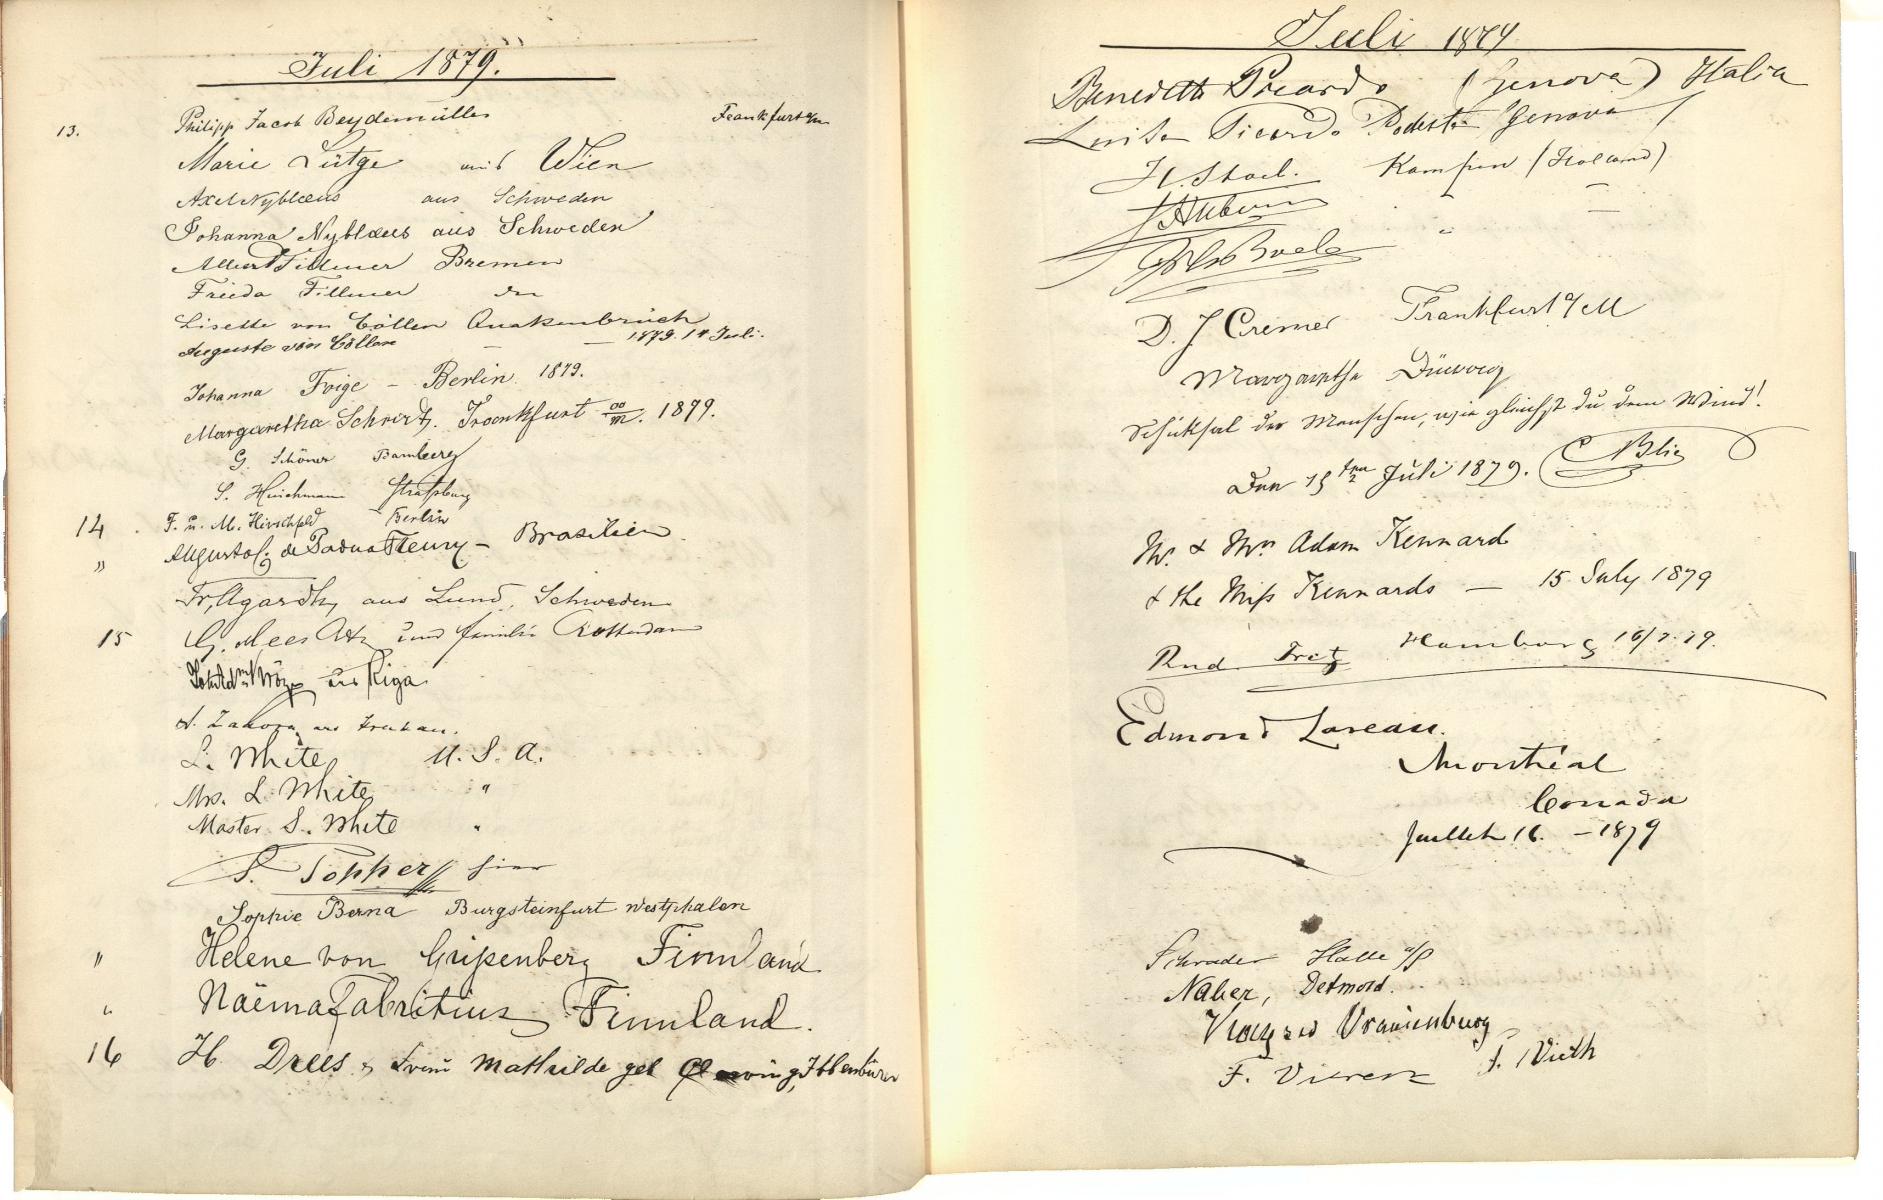 Juli 1879.
13. Philipp Jacob Beydemüller Frankfurt a/m
Marie Lütge aus Wien
Axel Nyblæus aus Schweden
Johanna Nyblæus aus Schweden
Albert Fillmer Bremen
Frieda Fillmer do
Lisette von Cöllen Quakenbrück
Auguste von Cöllen — — 1879. 14 Juli.
Johanna Froige – Berlin 1879.
Margaretha Frankfurt a/m. 1879.
G. Schöner Bamberg
S. Hirschmann Straßburg
14. F. u. M. Hirschfeld Berlin
" Augusto C. de Padua Fleury – Brasilien.
Fr. Agardh, aus Lund, Schweden
15 G. Mees und familie Rotterdam
aus Riga.
aus Krakau.
L. White U. S. A.
Mrs. L. White "
Master S. White "
S. Popper hier
Sophie Berna Burgsteinfurt Westphalen
" Helene von Gripenberg Finnland
" Naëma Fabritius Finnland.
16 H. Drees & Frau Mathilde geb Ibbenbüren
Juli 1879
Benedetto Picardo (Genova) Italia
Luisa Picardo Podestà Genova
H. Stoel. Kampen (Holland)
" —
D. J Cremer Frankfurt a/M
Margarethe
Schicksal der Menschen, wie gleichst du dem Wind!
Den 15ten Juli 1879.
Mr. & Mrs Adam Kennard
& the Miss Kennards — 15 July 1879
Rud. Fretz Hamburg 16/7.79.
Edmond Lareau.
Montréal
Canada
Juillet 16. – 1879
Schrader Halle a/S
Naher, Detmold.
F. Vieth